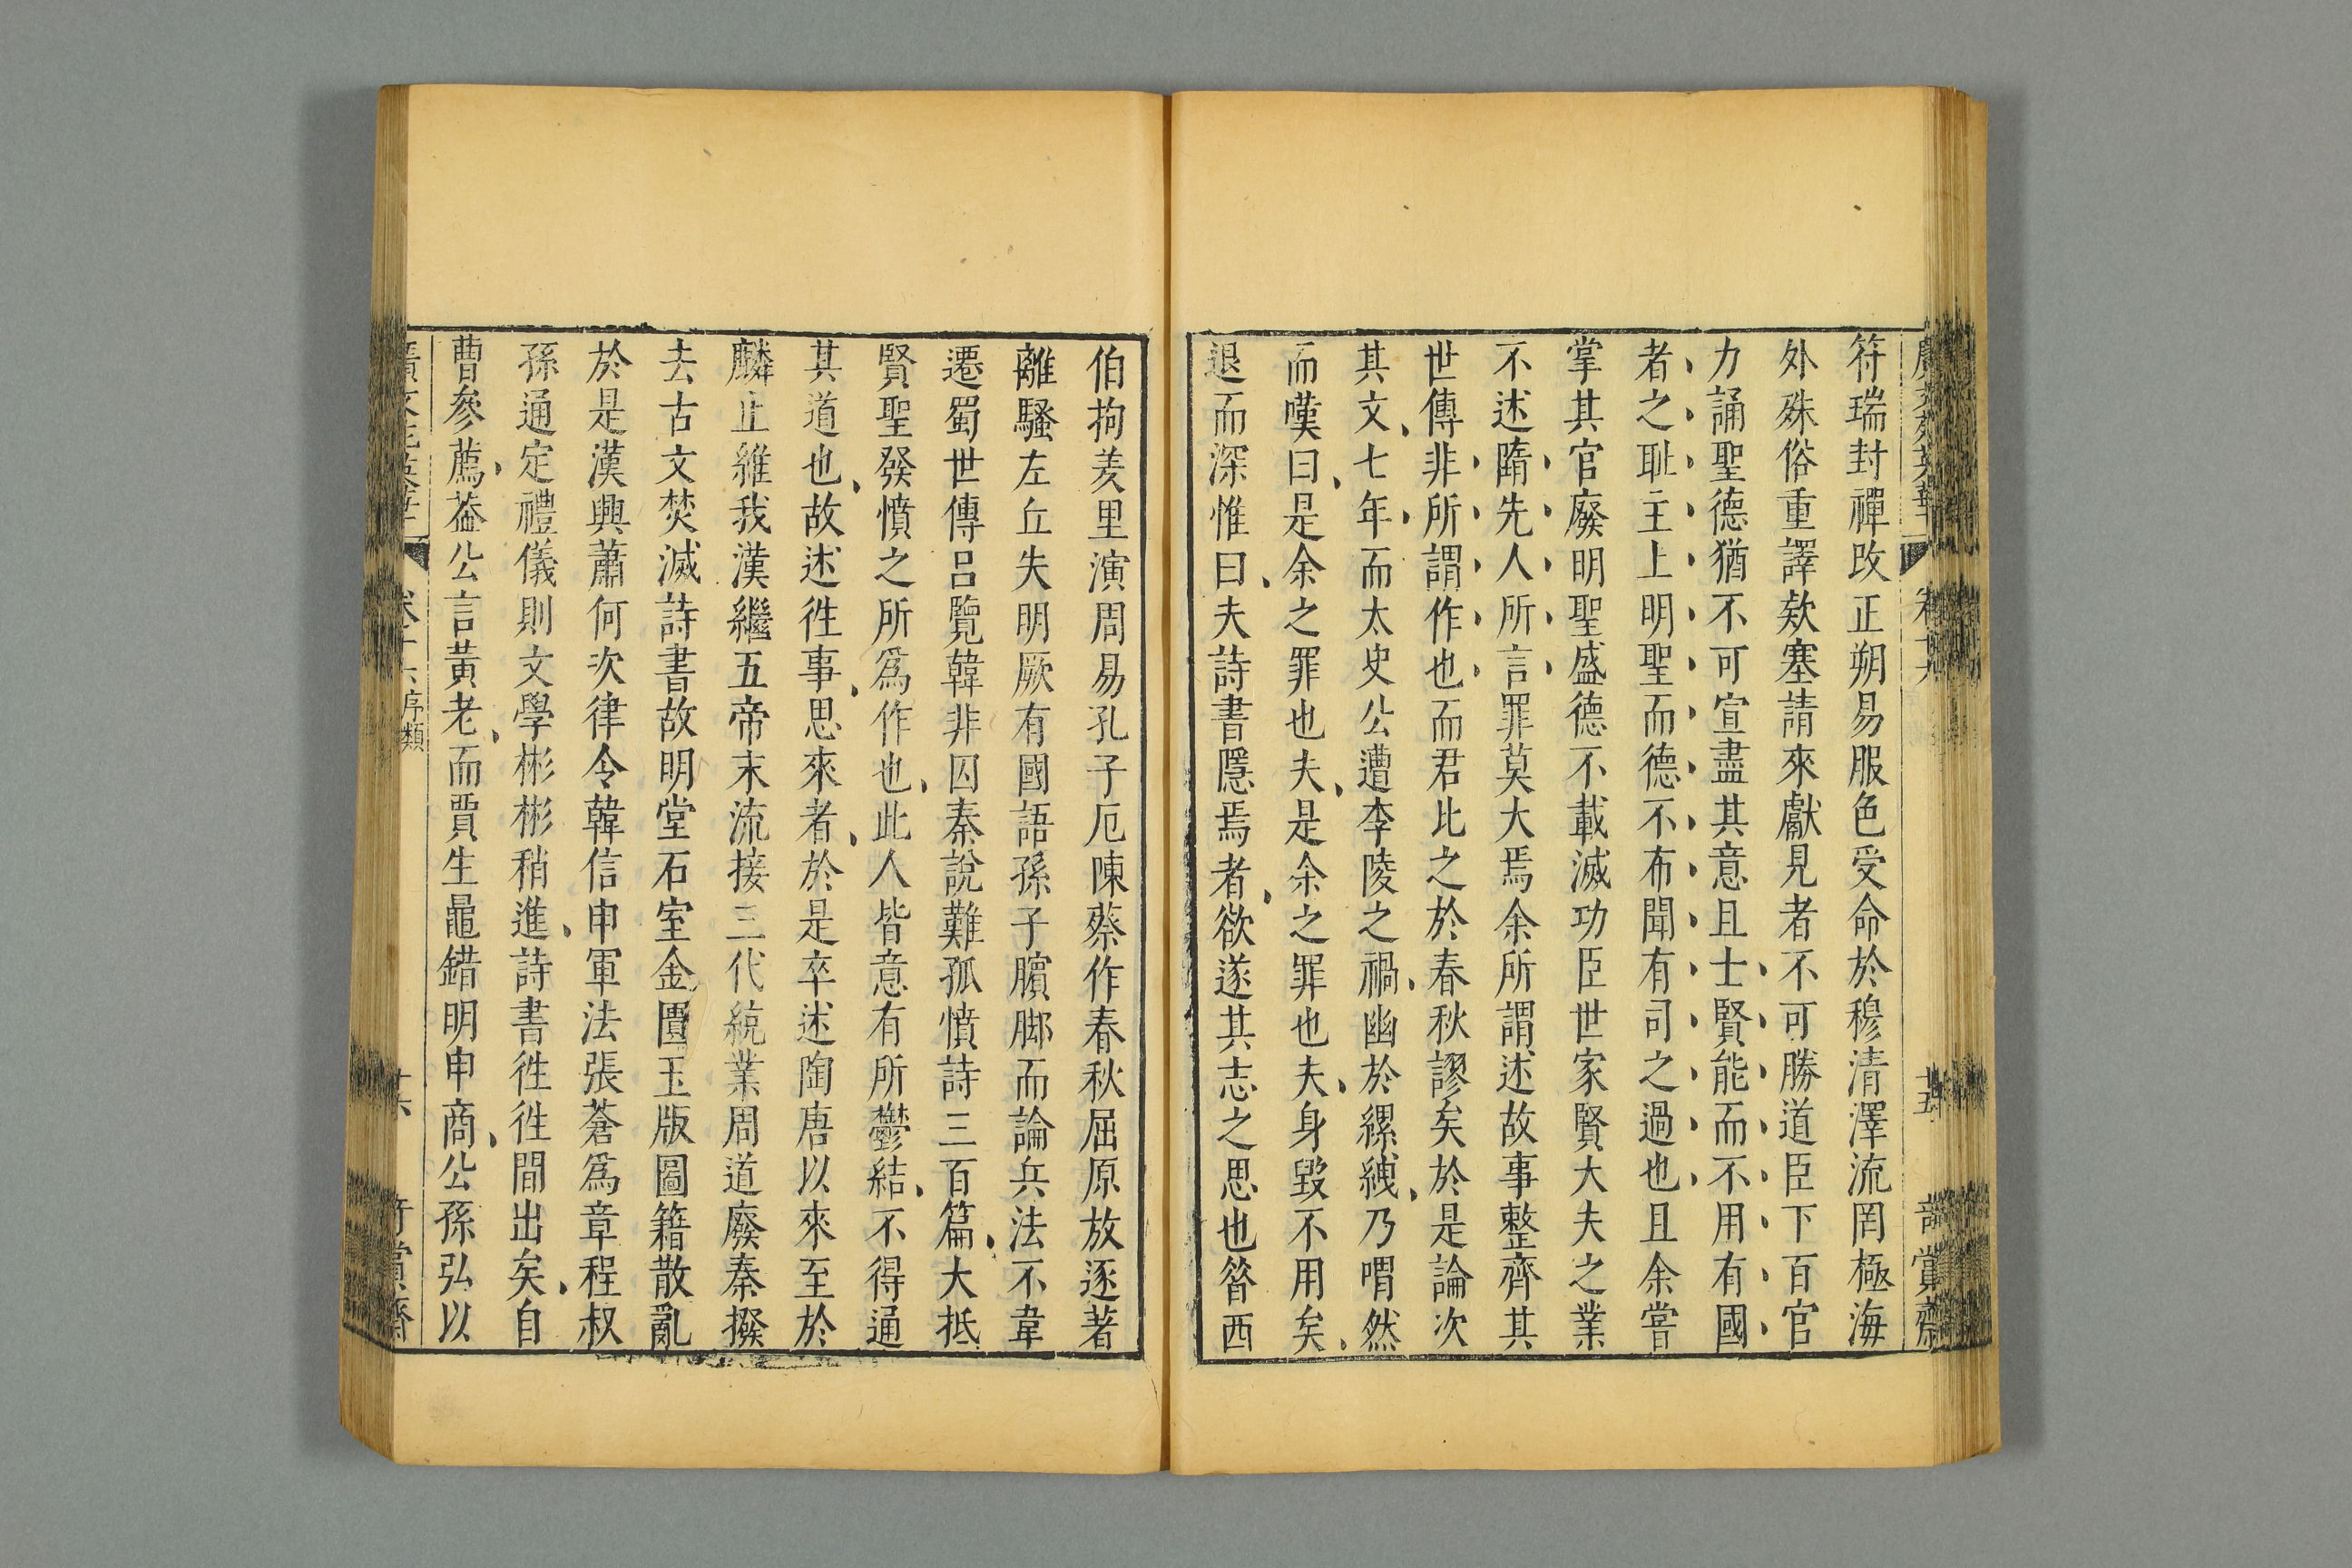 符瑞封禪改正朔易服色受命於穆清澤流罔極海
外殊俗重譯欵塞請來獻見者不可勝道臣下百官
力誦聖德猶不可宣盡其意且士賢能而不用有國
者之耻主上明聖而德不布聞有司之過也且余嘗
掌其官廢明聖盛德不載滅功臣世家賢大夫之業
不述隋先人所言罪莫大焉余所謂述故事整齊其
世傳非所謂作也而君比之於春秋謬矣於是論次
其文七年而太史公遭李陵之禍幽於縲紲乃喟然
而嘆曰是余之罪也夫是余之罪也夫身毀不用矣
退而深惟曰夫詩書隱焉者欲遂其志之思也昝西
伯拘羑里演周易孔子厄陳蔡作春秋屈原放逐著
離騷左丘失明厥有國語孫子臏脚而論兵法不韋
遷蜀世傳呂覽韓非囚秦說難孤憤詩三百篇大抵
賢聖發憤之所爲作也此人皆意有所鬱結不得通
其道也故述徃事思來者於是卒述陶唐以來至於
麟止維我漢繼五帝末流接三代綂業周道廢秦撥
去古文焚滅詩書故明堂石室金匱玉版圖籍散亂
於是漢興蕭何次律令韓信申軍法張蒼爲章程叔
孫通定禮儀則文學彬彬稍進詩書徃徃間出矣自
曹參薦葢公言黃老而賈生鼂錯明申商公孫弘以
廣文苑英華 卷十六 序類